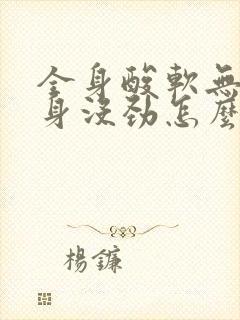 全身酸軟無
身沒勁怎麼
楊鐮